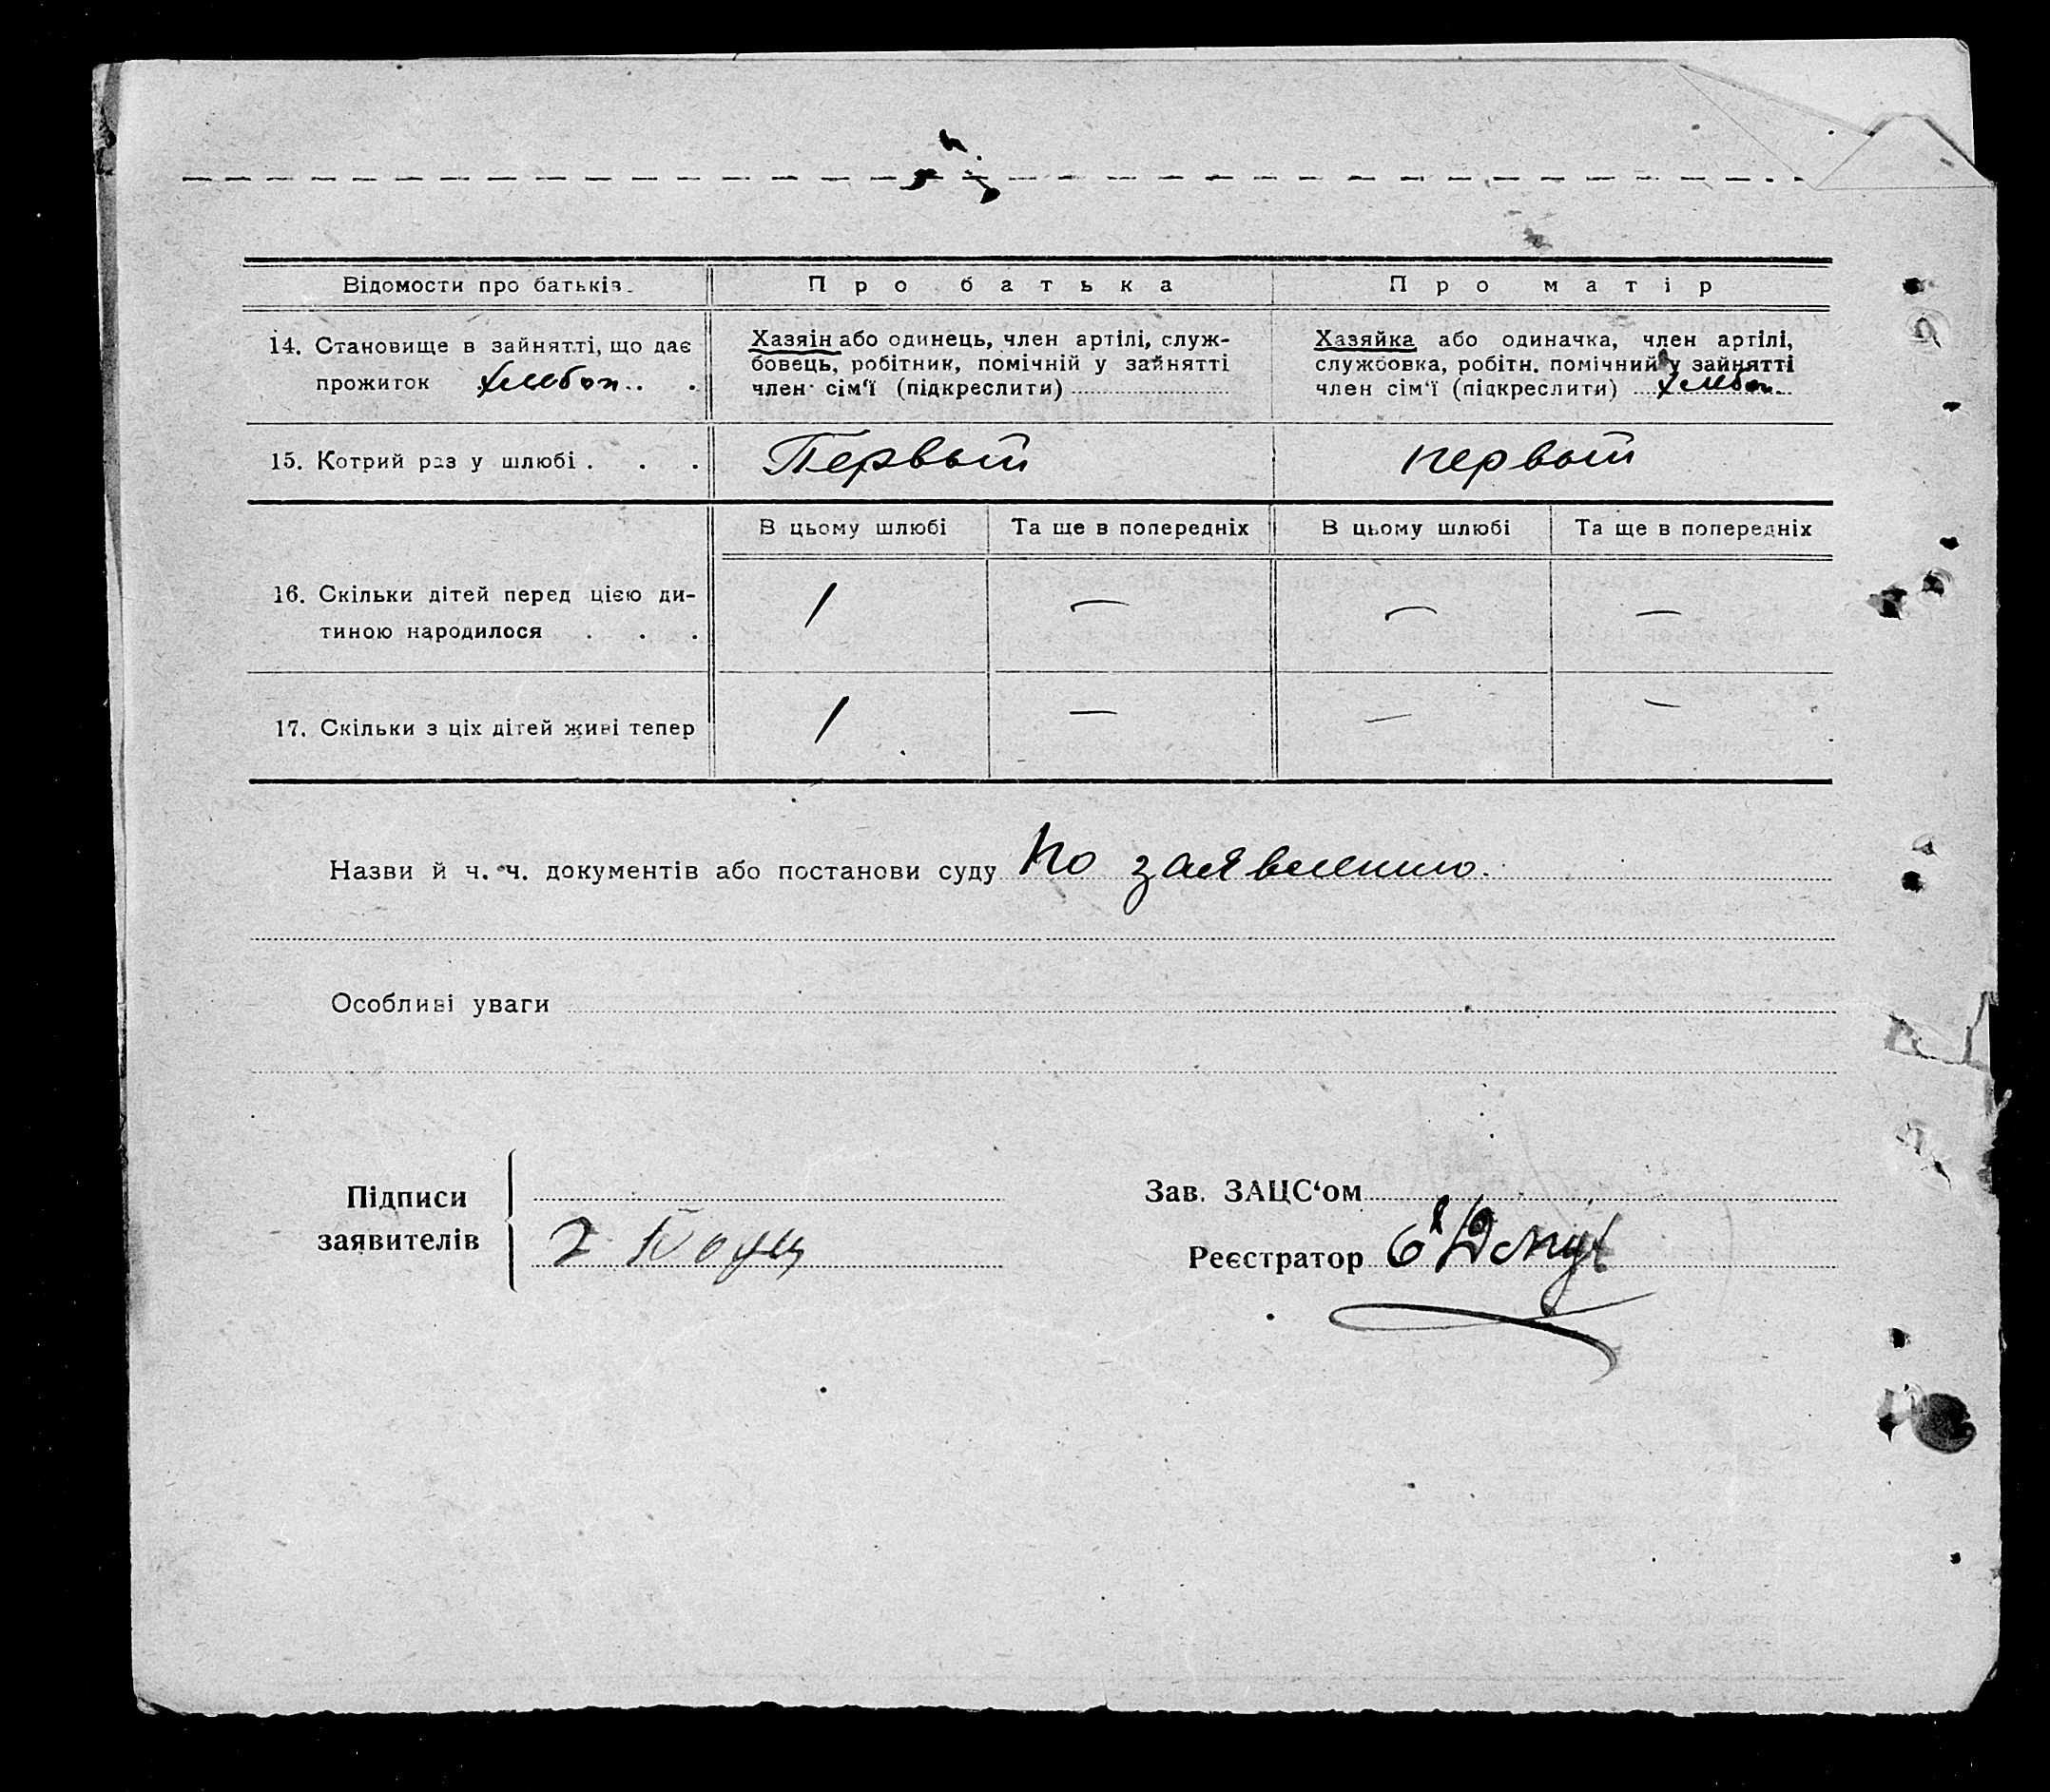 Відомости про батьків.
Про батька
Про матір
14. Становище в зайнятті, що дає
прожиток хлебоп.
Хазяїн або одинець, член артілі, служ-
бовець, робітник, помічній у зайнятті
член сім'ї (підкреслити)
Хазяйка або одиначка, член артілі,
службовка, робітн. помічний у зайнятті
член сім'ї (підкреслити) хлебоп.
15. Котрий раз у шлюбі . . .
Первый
первый
В цьому шлюбі
Та ще в попередніх
В цьому шлюбі
Та ще в попередніх
16. Скільки дітей перед цією ди-
тиною народилося . . .
1 — — —
17. Скільки з ціх дітей живі тепер
1 — — —
Назви й ч. ч. документів або постанови суду По заявлению.
Особливі уваги
Підписи
заявителів
Зав. ЗАЦС'ом
Реєстратор